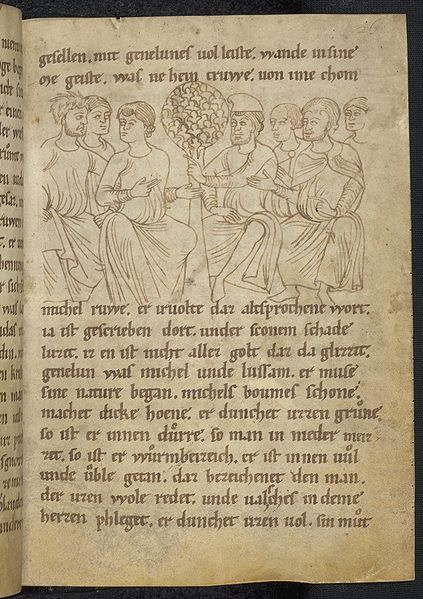 gesellen. mit genelunes uol leiste. wande in sine
me geiste. was ne hein truwe. uon ime chom
michel ruwe. er iruolte daz altsprochene wort.
ia ist gescrieben dort. under sconem schade
luzet. iz en ist nicht allez golt daz da glizzit.
genelun was michel unde lussam. er muse
sine nature began. michels boumes schone
machet dicke hoene. er dunchet uzzen grůne
so ist er innen důrre. so man in nieder meiz
zet. so ist er wůrmbeizeich. er ist innen uůl
unde ůble getan. daz bezeichenet den man.
der uzen wole redet. unde ualsches in deme
herzen phleget. er dunchet uzen uol. sin můt